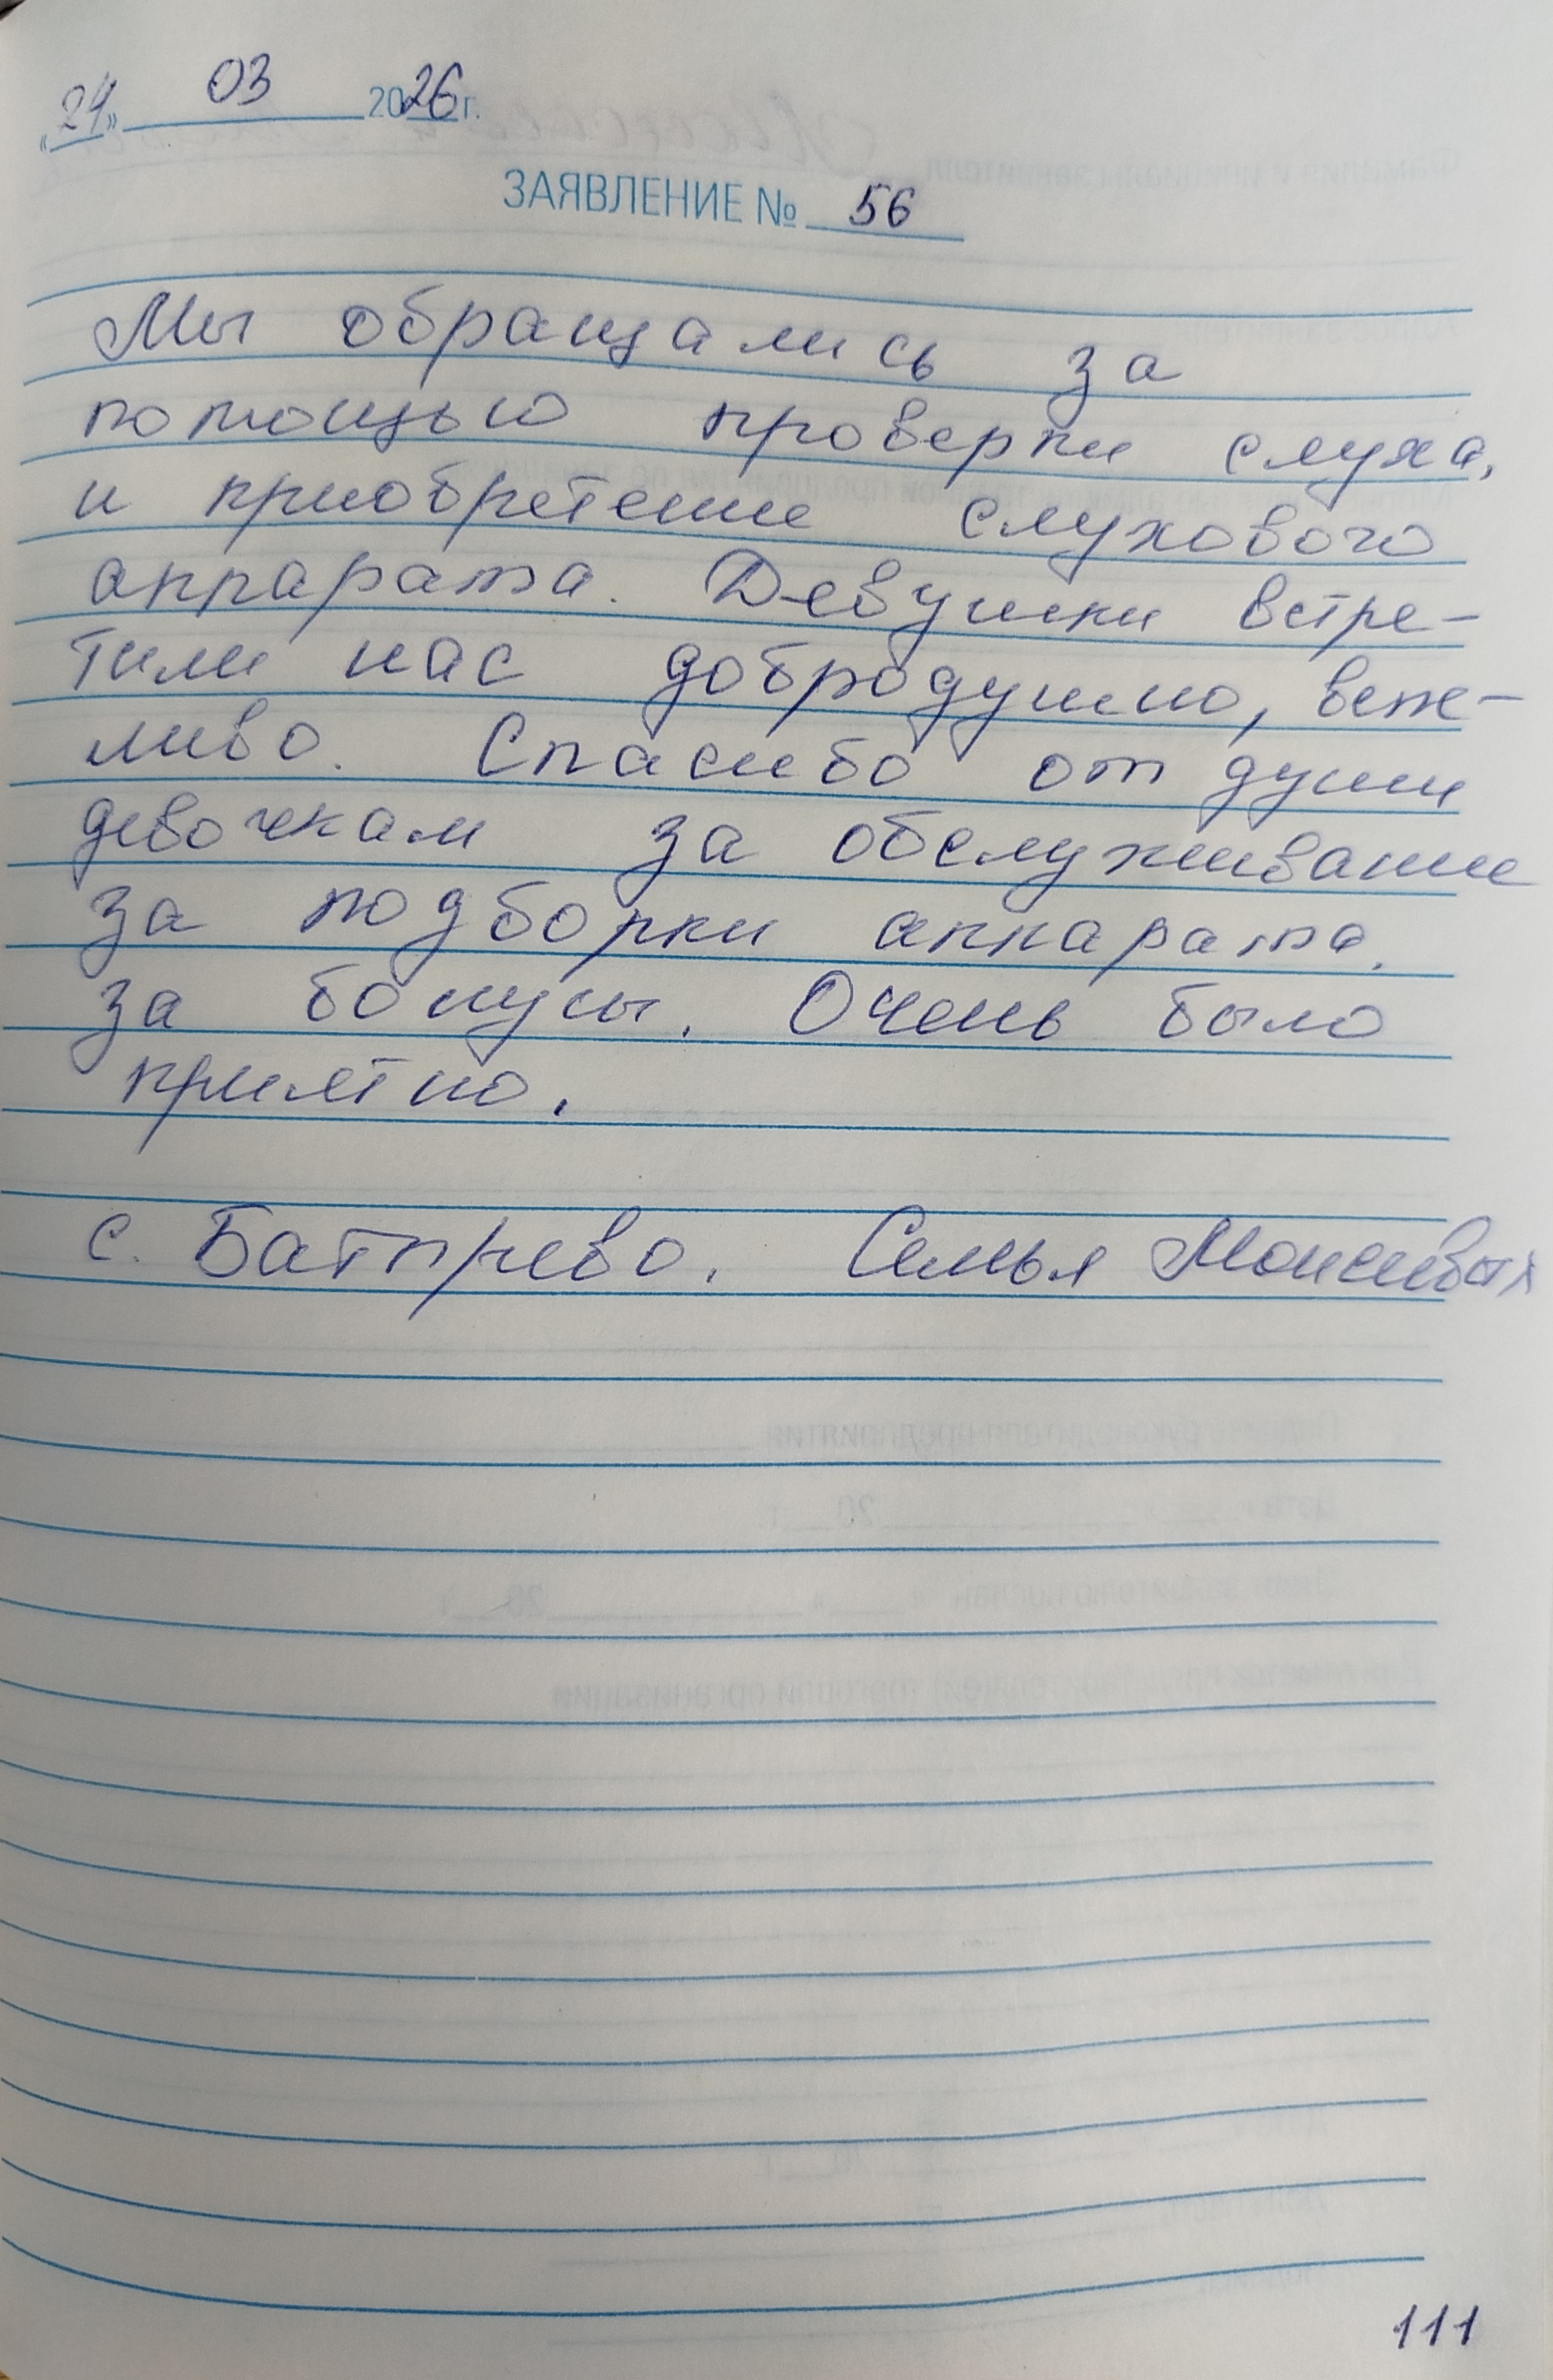 «24» 03 2026 г.
ЗАЯВЛЕНИЕ № 56
Мы обращались за
помощью проверки слуха,
и приобретение слухового
аппарата. Девушки встре-
тили нас добродушно, веж-
ливо. Спасибо от души
девочкам за обслуживание
за подборки аппарата,
за бонусы. Очень было
приятно.
с. Батырево. Семья Моисеевых
111